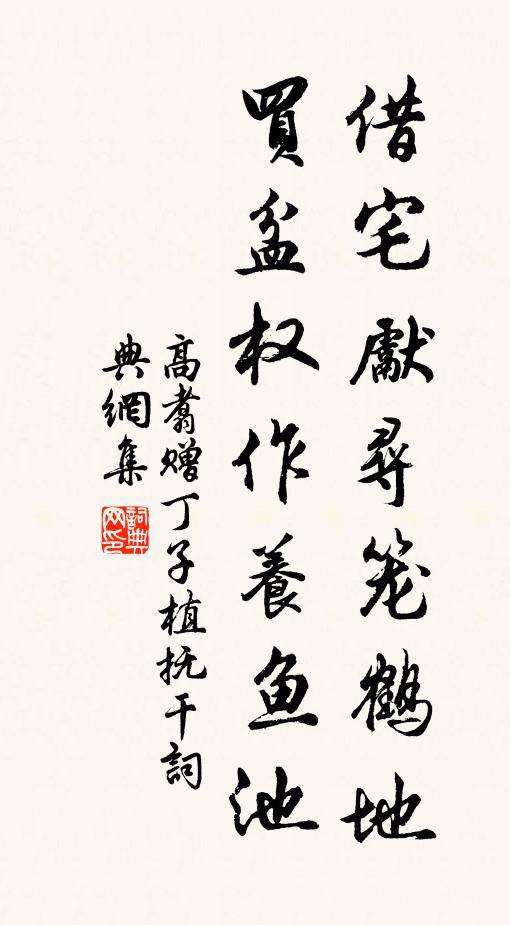 借宅獻尋笼鶴地
買盆权作養鱼池
高翥赠丁子植抚干詞
典網集
詞典
网印